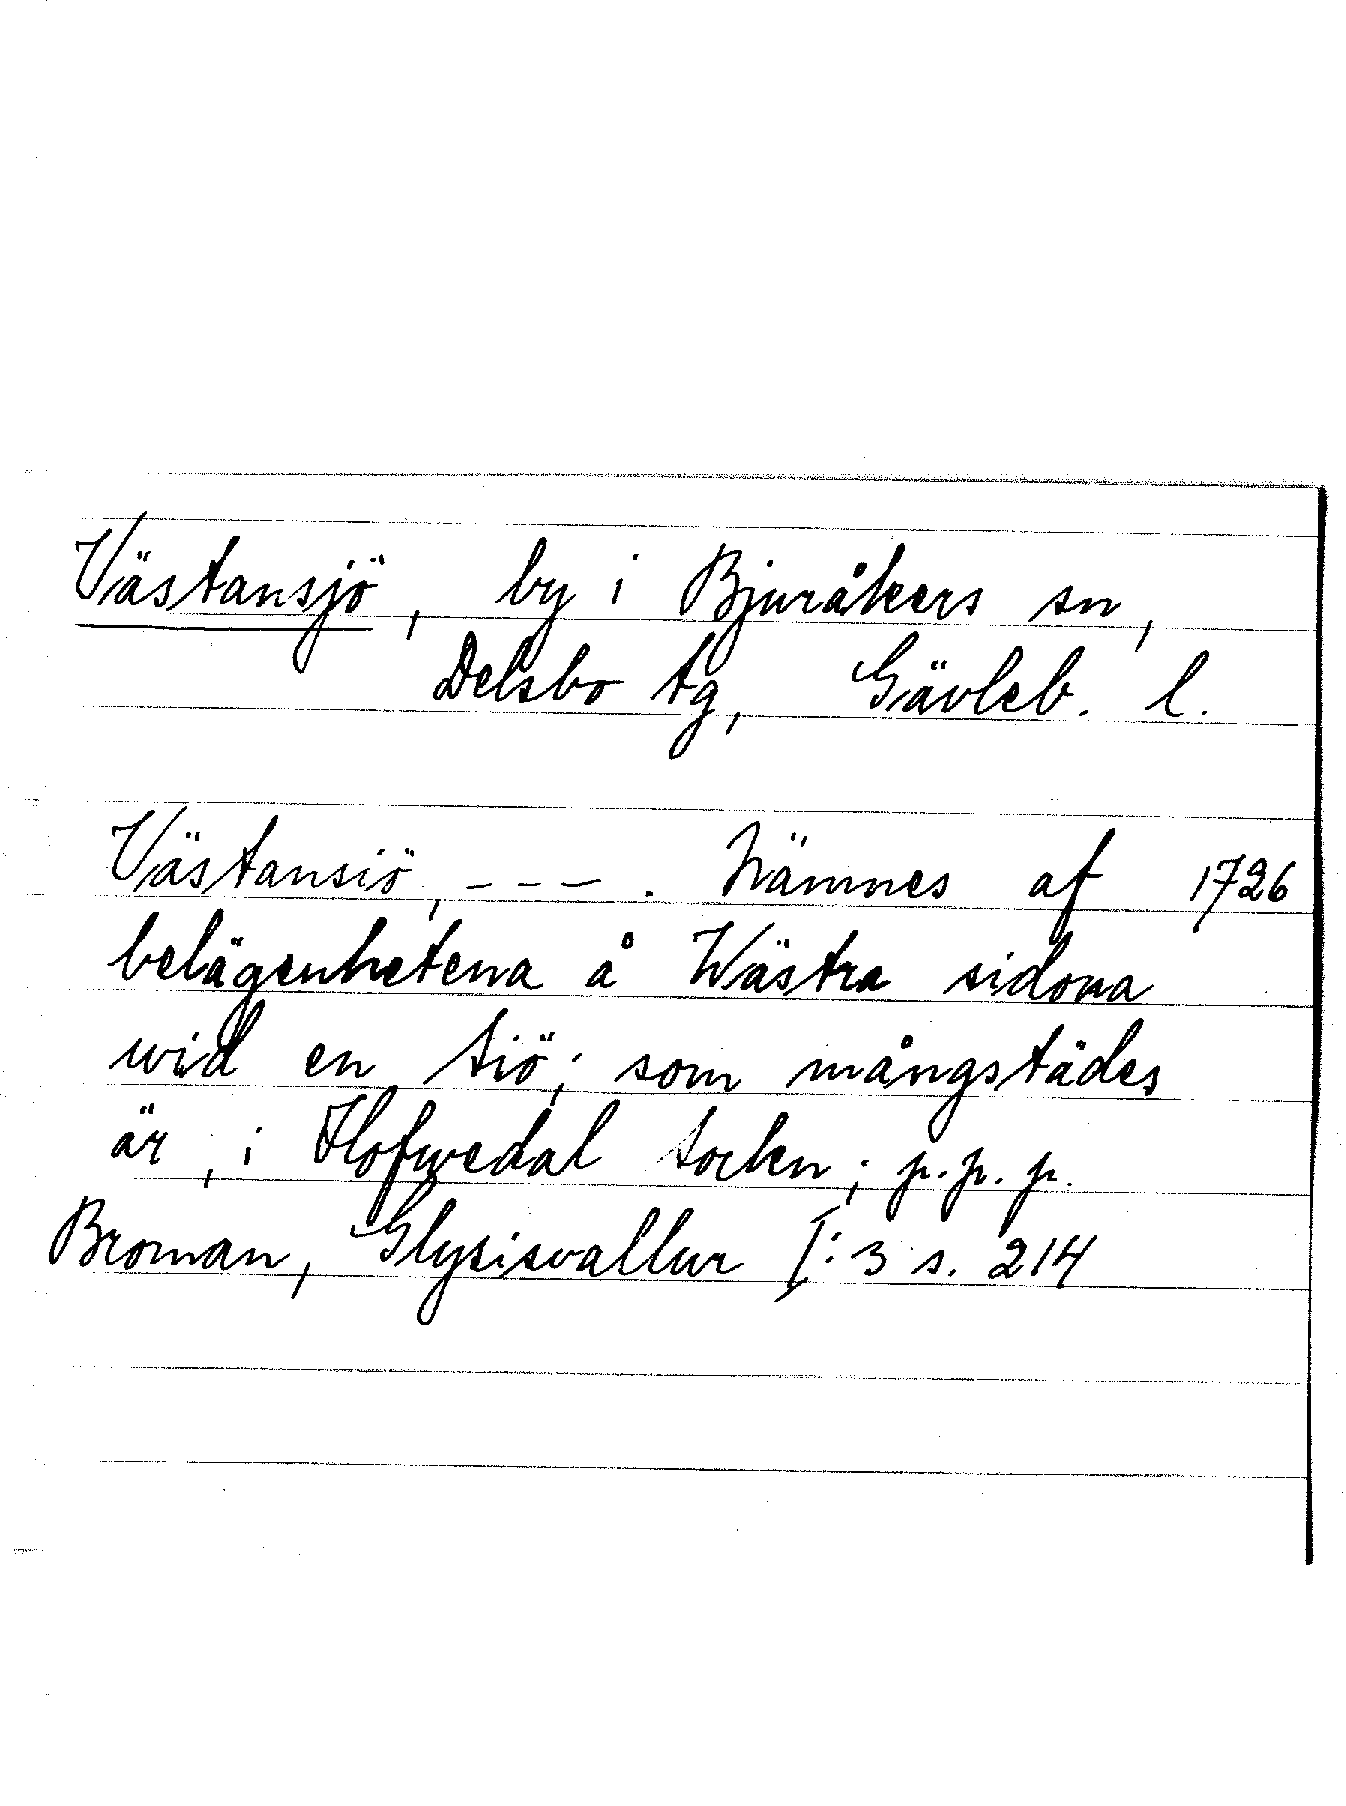 Västansjö, by i Bjuråkers sn,
Delsbo tg, Gävleb. l.
Västansiö, - - - . Nämnes af 1726
belägenhetena å Wästra sidona
wid en siö; som mångstädes
är, i Hofwedal socken; p. p. p.
Broman, Glysisvallur I:3 s. 214